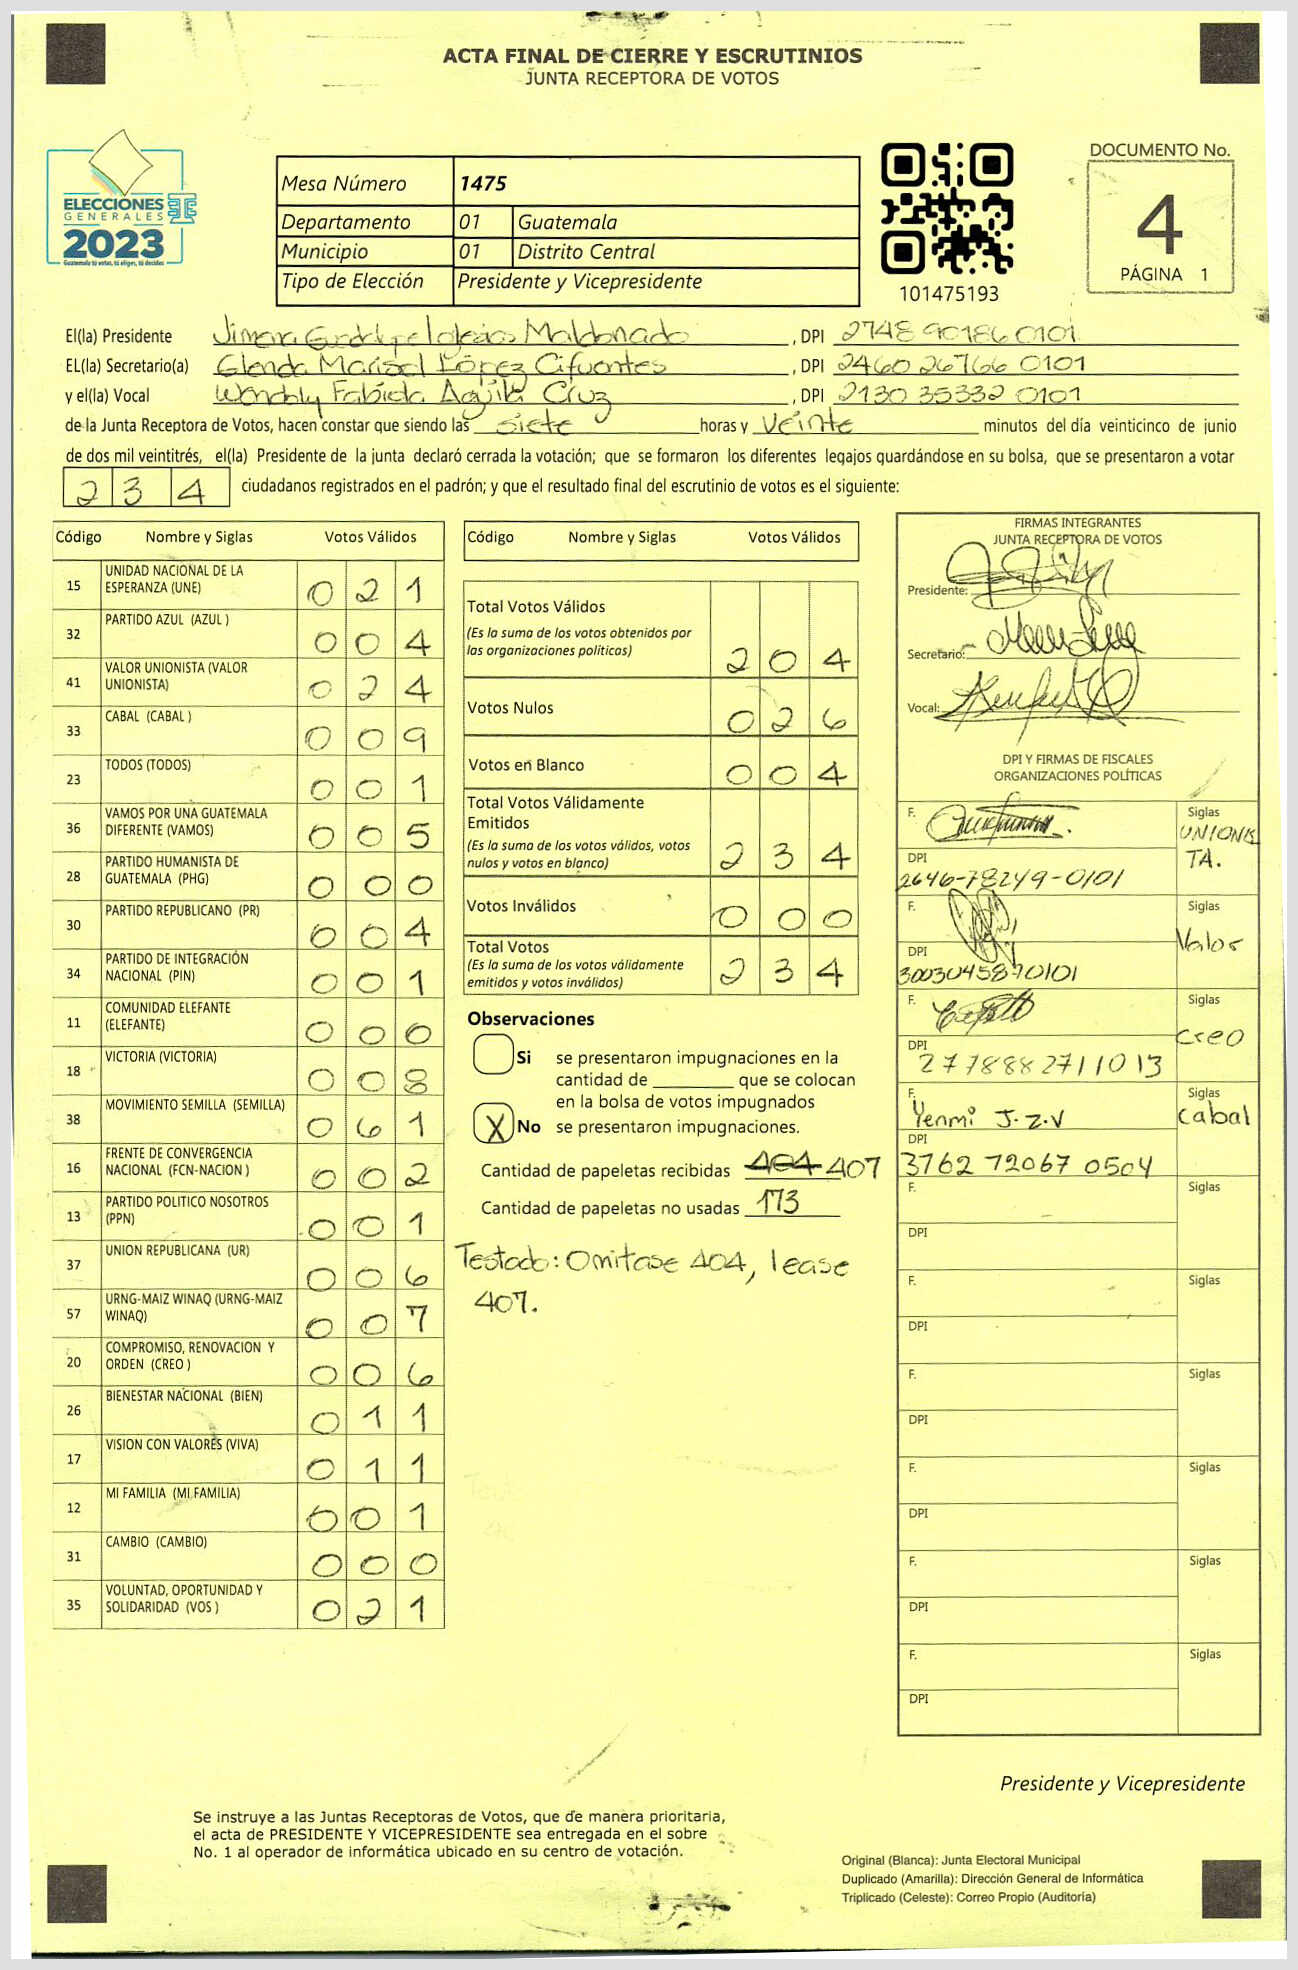 ACTA FINAL DE CIERRE Y ESCRUTINIOS
JUNTA RECEPTORA DE VOTOS
ELECCIONES
GENERALES
2023
Guatemala tú votas, tú eliges, tú decides
Mesa Número 1475
Departamento 01 Guatemala
Municipio 01 Distrito Central
Tipo de Elección Presidente y Vicepresidente
101475193
DOCUMENTO No.
4
PÁGINA 1
El(la) Presidente Jimena Guadalupe Iglesias Maldonado, DPI 2748 90186 0101
EL(la) Secretario(a) Glenda Marisol López Cifuentes, DPI 2460 26766 0101
y el(la) Vocal Wendly Fabiola Aguila Cruz, DPI 2130 35332 0101
de la Junta Receptora de Votos, hacen constar que siendo las siete horas y veinte minutos del día veinticinco de junio
de dos mil veintitrés, el(la) Presidente de la junta declaró cerrada la votación; que se formaron los diferentes legajos guardándose en su bolsa, que se presentaron a votar
234 ciudadanos registrados en el padrón; y que el resultado final del escrutinio de votos es el siguiente:
Código Nombre y Siglas Votos Válidos
15 UNIDAD NACIONAL DE LA
ESPERANZA (UNE) 0 2 1
32 PARTIDO AZUL (AZUL ) 0 0 4
41 VALOR UNIONISTA (VALOR
UNIONISTA) 0 2 4
33 CABAL (CABAL ) 0 0 9
23 TODOS (TODOS) 0 0 1
36 VAMOS POR UNA GUATEMALA
DIFERENTE (VAMOS) 0 0 5
28 PARTIDO HUMANISTA DE
GUATEMALA (PHG) 0 0 0
30 PARTIDO REPUBLICANO (PR) 0 0 4
34 PARTIDO DE INTEGRACIÓN
NACIONAL (PIN) 0 0 1
11 COMUNIDAD ELEFANTE
(ELEFANTE) 0 0 0
18 VICTORIA (VICTORIA) 0 0 8
38 MOVIMIENTO SEMILLA (SEMILLA) 0 6 1
16 FRENTE DE CONVERGENCIA
NACIONAL (FCN-NACION ) 0 0 2
13 PARTIDO POLITICO NOSOTROS
(PPN) 0 0 1
37 UNION REPUBLICANA (UR) 0 0 6
57 URNG-MAIZ WINAQ (URNG-MAIZ
WINAQ) 0 0 7
20 COMPROMISO, RENOVACION Y
ORDEN (CREO ) 0 0 6
26 BIENESTAR NACIONAL (BIEN) 0 1 1
17 VISION CON VALORES (VIVA) 0 1 1
12 MI FAMILIA (MI FAMILIA) 0 0 1
31 CAMBIO (CAMBIO) 0 0 0
35 VOLUNTAD, OPORTUNIDAD Y
SOLIDARIDAD (VOS ) 0 2 1
Código Nombre y Siglas Votos Válidos
Total Votos Válidos
(Es la suma de los votos obtenidos por
las organizaciones politicas) 2 0 4
Votos Nulos 0 2 6
Votos en Blanco 0 0 4
Total Votos Válidamente
Emitidos
(Es la suma de los votos válidos, votos
nulos y votos en blanco) 2 3 4
Votos Inválidos 0 0 0
Total Votos
(Es la suma de los votos válidamente
emitidos y votos inválidos) 2 3 4
Observaciones
Si se presentaron impugnaciones en la
cantidad de ________ que se colocan
en la bolsa de votos impugnados
X No se presentaron impugnaciones.
Cantidad de papeletas recibidas 404 407
Cantidad de papeletas no usadas 173
Testado: Omitase 404, lease
407.
FIRMAS INTEGRANTES
JUNTA RECEPTORA DE VOTOS
Presidente:
Secretario:
Vocal:
DPI Y FIRMAS DE FISCALES
ORGANIZACIONES POLÍTICAS
F. Siglas
UNIONIS
TA.
DPI
2646-78249-0101
F. Siglas
Valor
DPI
3003045870101
F. Siglas
Creo
DPI
2778882711013
F. Siglas
Yenmi J.Z.V Cabal
DPI
3762 72067 0504
F. Siglas
DPI
F. Siglas
DPI
F. Siglas
DPI
F. Siglas
DPI
F. Siglas
DPI
F. Siglas
DPI
Presidente y Vicepresidente
Se instruye a las Juntas Receptoras de Votos, que de manera prioritaria,
el acta de PRESIDENTE Y VICEPRESIDENTE sea entregada en el sobre
No. 1 al operador de informática ubicado en su centro de votación.
Original (Blanca): Junta Electoral Municipal
Duplicado (Amarilla): Dirección General de Informática
Triplicado (Celeste): Correo Propio (Auditoría)